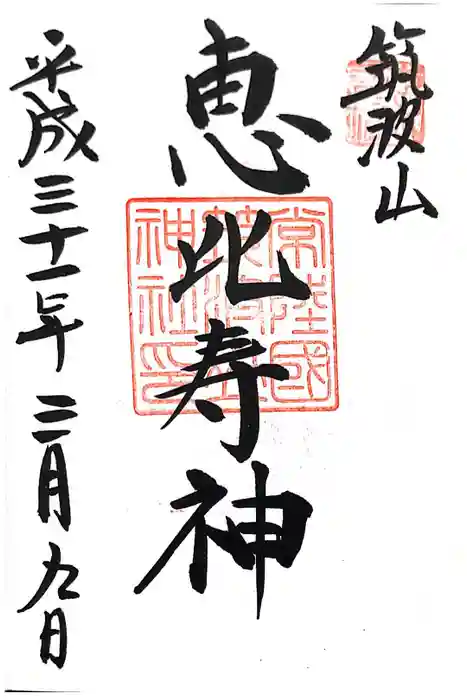 筑波山
恵比寿神
常陸國
筑波山
神社印
平成三十一年三月九日